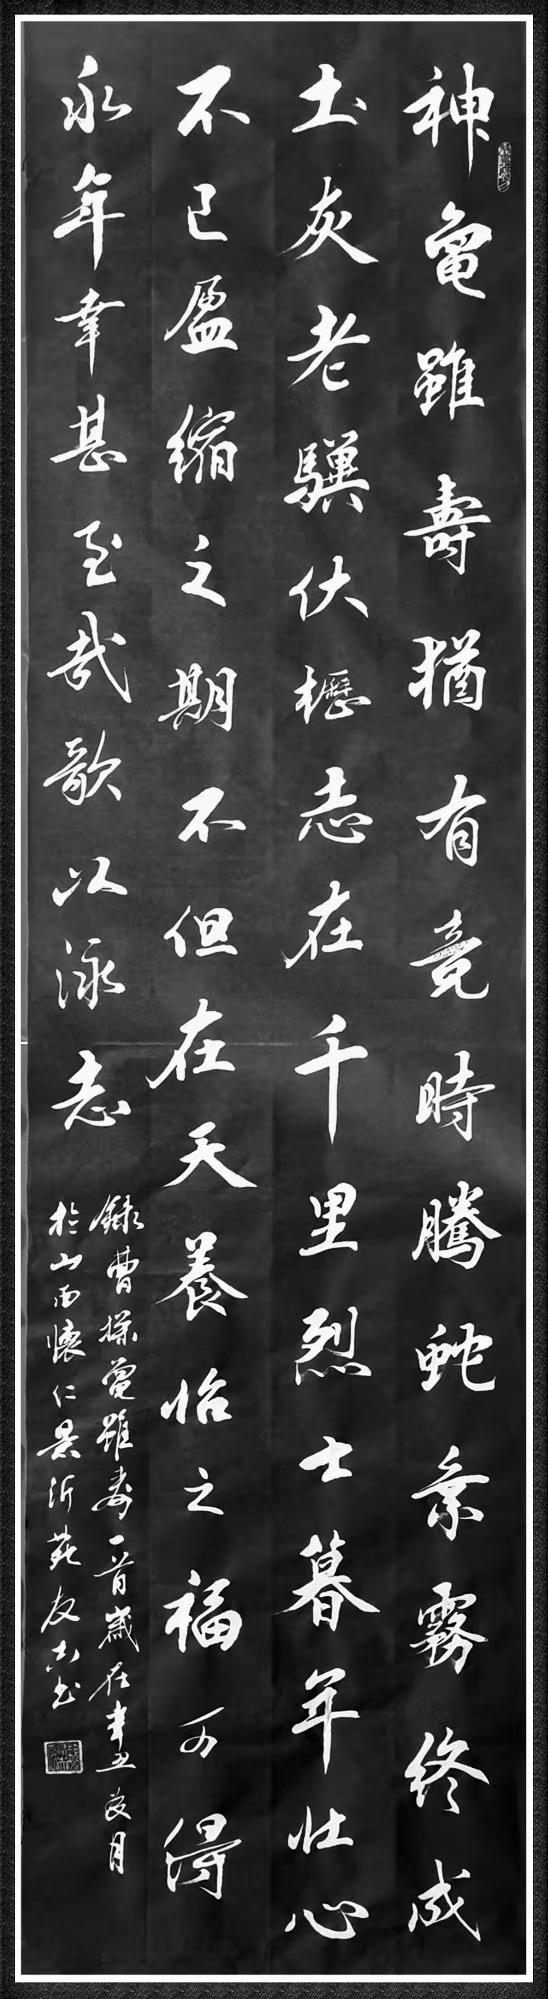 神龜雖壽猶有竟時騰蛇乘霧終成
土灰老驥伏櫪志在千里烈士暮年壯心
不已盈縮之期不但在天養怡之福可得
永年幸甚至哉歌以詠志
錄曹操龜雖壽一首歲在辛丑月
於山西懷仁景沂苑友志书